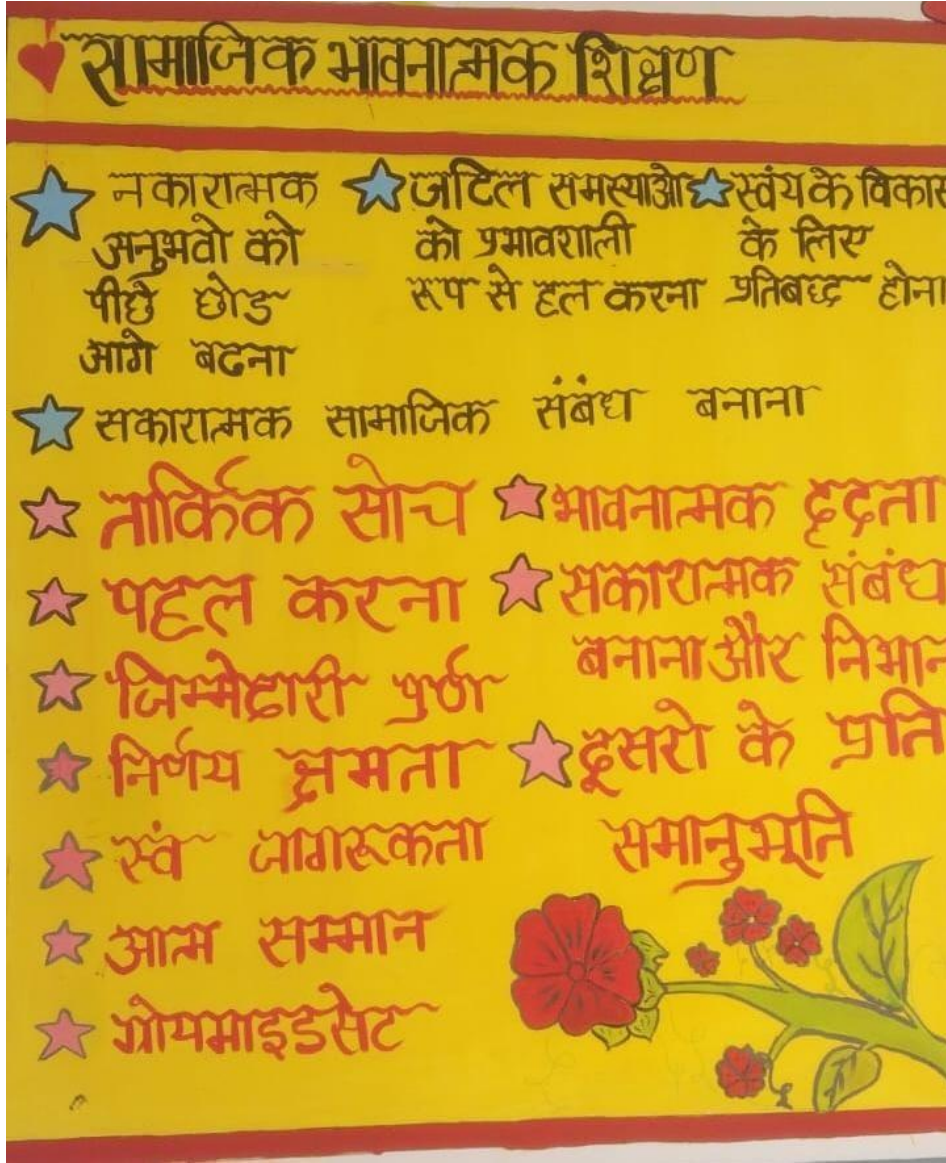 सामाजिक भावनात्मक शिक्षण
नकारात्मक
अनुभवो को
पीछे छोड
आगे बढना
जटिल समस्याओ
को प्रभावशाली
रूप से हल करना
स्वंय के विकास
के लिए
प्रतिबध्द होना
सकारात्मक सामाजिक संबंध बनाना
तार्किक सोच
पहल करना
जिम्मेदारी पुर्ण
निर्णय क्षमता
स्वं जागरूकता
आत्म सम्मान
ग्रोथमाइडसेट
भावनात्मक दृढ़ता
सकारात्मक संबंध
बनाना और निभान
दूसरो के प्रति
समानुभूति